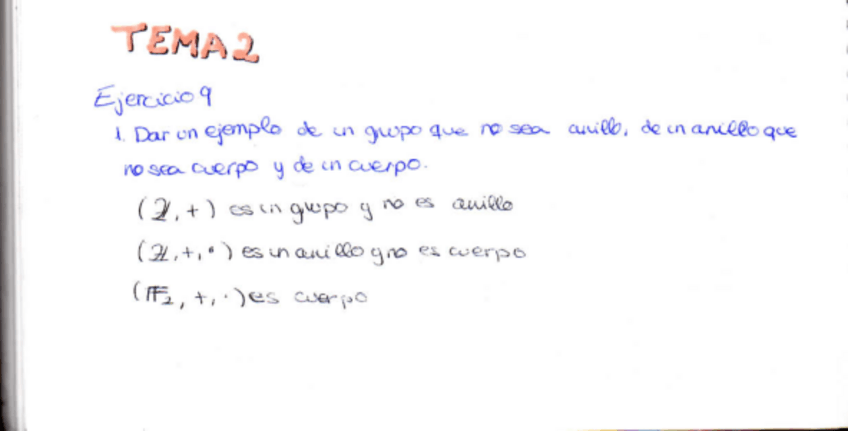 TEMA 2
Ejercicio 9
1. Dar un ejemplo de un grupo que no sea anillo, de un anillo que
no sea cuerpo y de un cuerpo.
(ℤ, +) es un grupo y no es anillo
(ℤ, +, ·) es un anillo y no es cuerpo
(𝔽₂, +, ·) es cuerpo